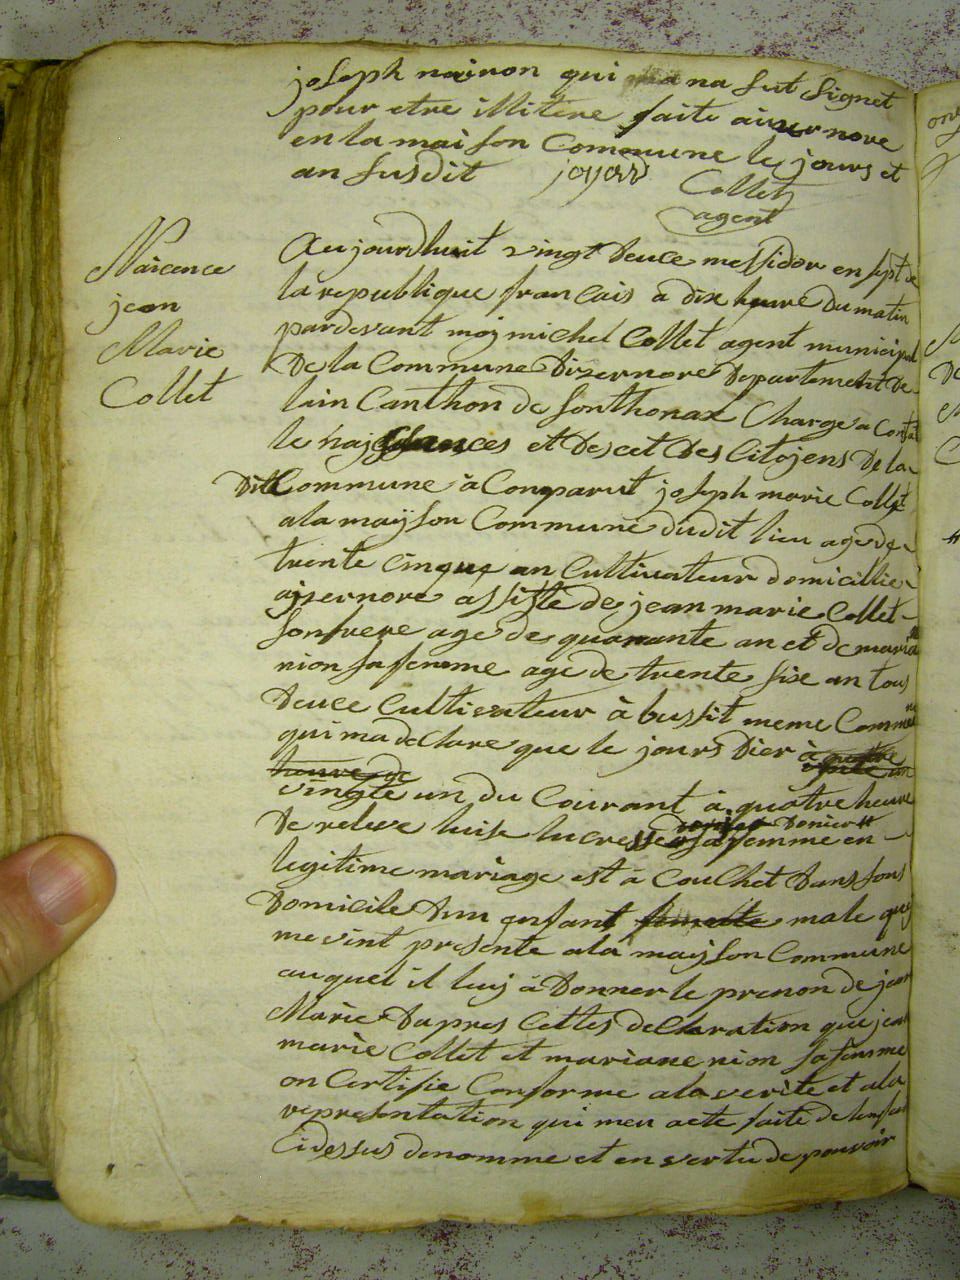 joseph nairon qui na sut Signet
pour etre illitere faite aisernore
en la maison Commune le jours et
an susdit joyard
Collet
agent
Naicence
jean
Marie
Collet
Aujourdhuit vingt deuce messidor en sept de
la republique francais a dix heure du matin
pardevant moj michel Collet agent municipal
De la Commune Disernore Departement de
lain Canthon de Sonthonax Charge a Conta
le najssances et Descet Des Citojens De la
Ditte Commune à Comparut joseph marie Collet
a la mayson Commune dudit lieu age de
trente cinque an Cultivateur domicillie
ajsernore assiste de jean marie Collet
son frere age de quarante an et de maria
nion sa femme age de trente six an tous
deuce Cultivateur à bussit meme Commune
qui ma declare que le jours Dier à quatre
heure de
vingte un du Courant à quatre heure
De releve luise lucresse sa femme en
legitime mariage est à Couchet Dans sons
Domicile Dun enfant femelle male quj
me vint presente a la mayson Commune
auquel il luj à Donner le prenon de jean
Marie Dapres Cettes declaration que jean
marie Collet et mariane nion sa femme
on Certifie Conforme a la verite et a la
representation qui meu aete faite de lenfan
Cidessus denomme et en vertu de pouvoir